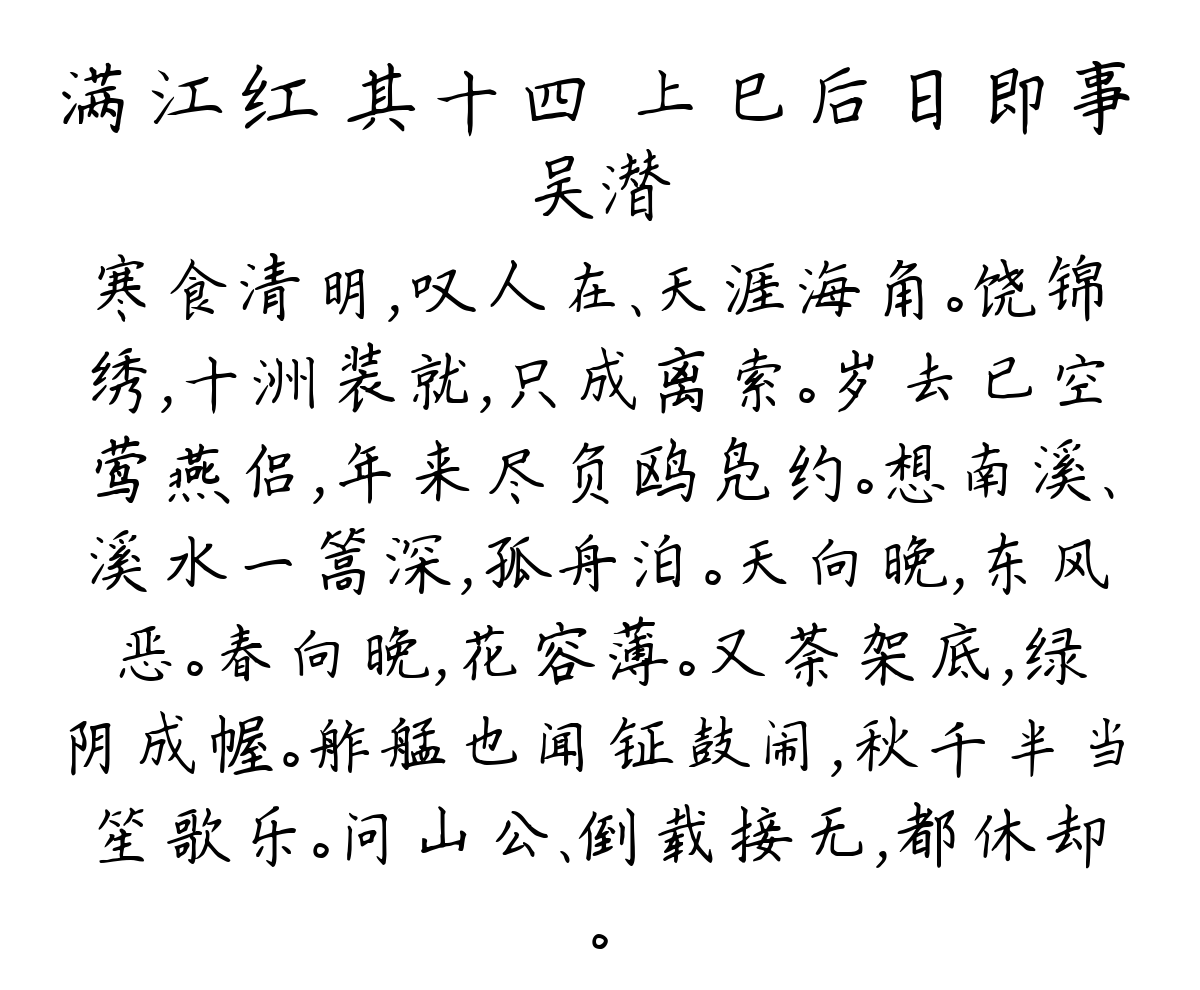 满江红 其十四 上巳后日即事
吴潜
寒食清明,叹人在、天涯海角。饶锦
绣,十洲装就,只成离索。岁去已空
莺燕侣,年来尽负鸥凫约。想南溪、
溪水一篙深,孤舟泊。天向晚,东风
恶。春向晚,花容薄。又荼架底,绿
阴成幄。舴艋也闻钲鼓闹,秋千半当
笙歌乐。问山公、倒载接无,都休却
。